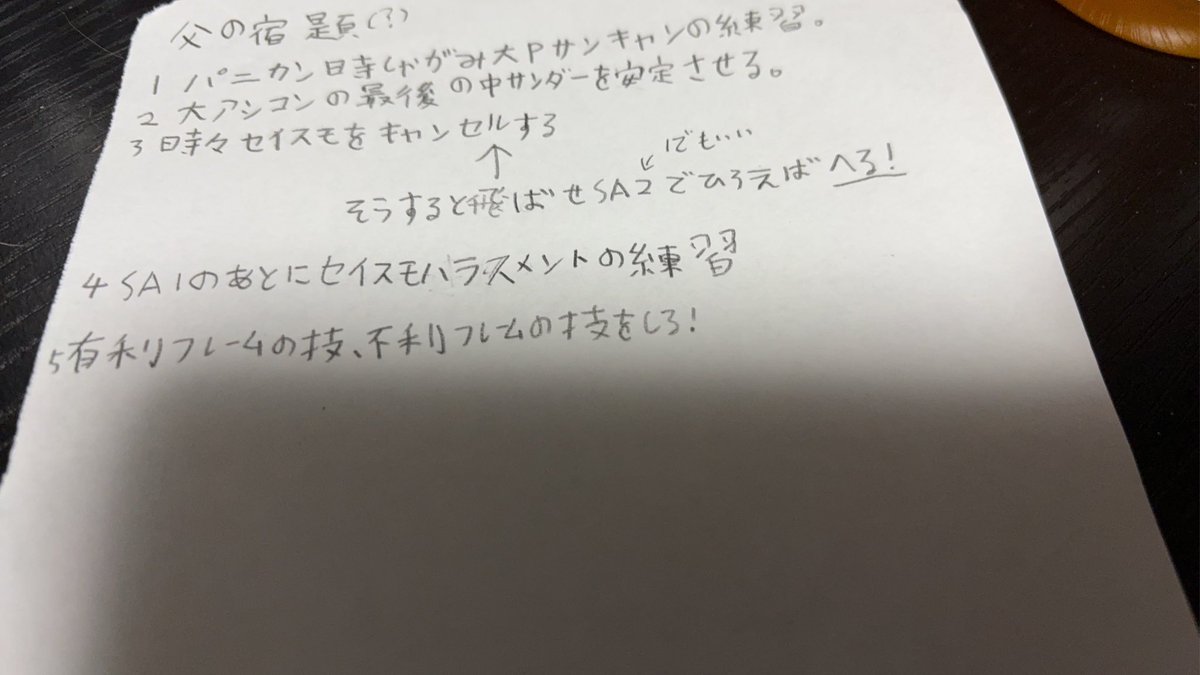 父の宿題(?)
1 パニカン時しゃがみ大Pサンキャンの練習。
2 大アシコンの最後の中サンダーを安定させる。
3 時々セイスモをキャンセルする
↑ ↙でもいい
そうすると飛ばせSA2でひろえばへる!
4 SA1のあとにセイスモハラスメントの練習
5 有利フレームの技、不利フレームの技をしろ!